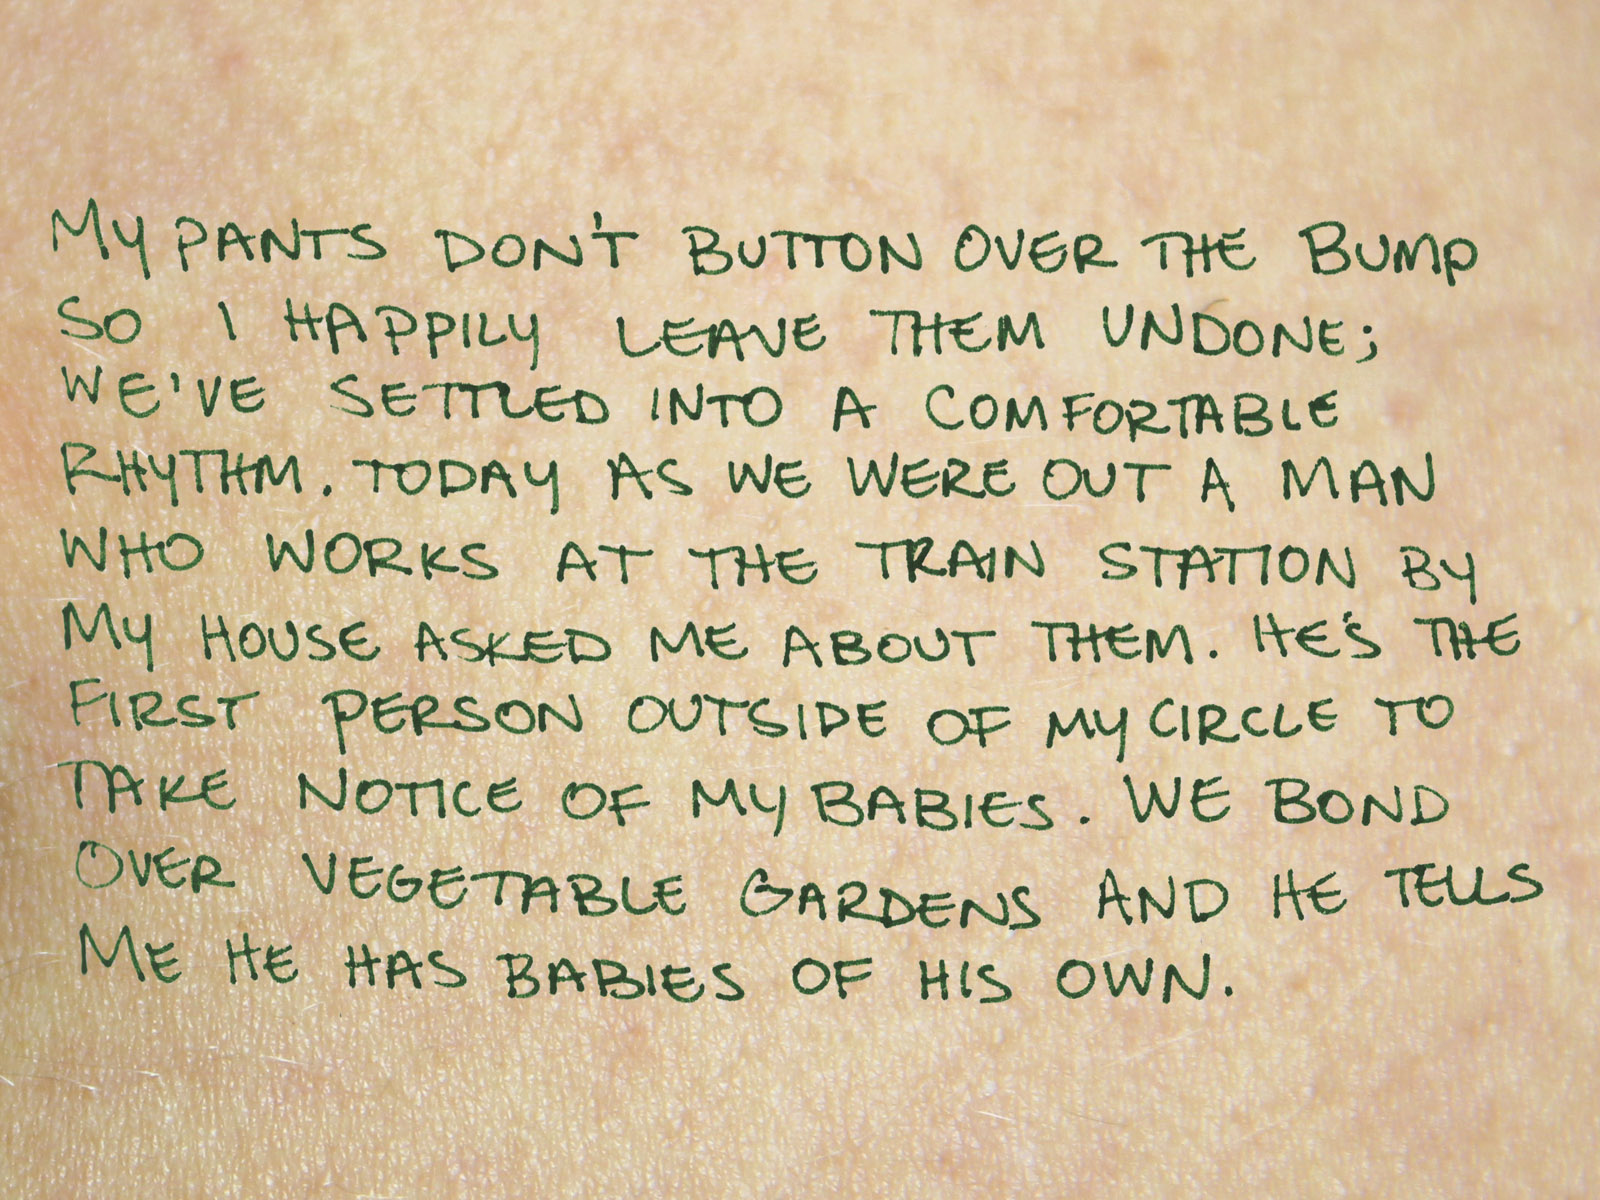 MY PANTS DON'T BUTTON OVER THE BUMP
SO I HAPPILY LEAVE THEM UNDONE;
WE'VE SETTLED INTO A COMFORTABLE
RHYTHM. TODAY AS WE WERE OUT A MAN
WHO WORKS AT THE TRAIN STATION BY
MY HOUSE ASKED ME ABOUT THEM. HE'S THE
FIRST PERSON OUTSIDE OF MY CIRCLE TO
TAKE NOTICE OF MY BABIES. WE BOND
OVER VEGETABLE GARDENS AND HE TELLS
ME HE HAS BABIES OF HIS OWN.